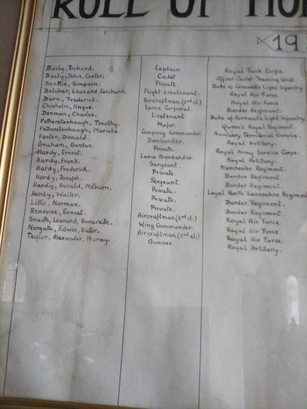 ROLL OF HO
19
Baily, Richard. Captain Royal Tank Corps.
Baily, John, Carter. Cadet Officer Cadet Training Unit
Beattie, Simpson. Private Duke of Cornwalls Light Infantry
Belcher, Leonard Flight Lieutenant. Royal Air Force
Burn, Frederick. Aircraftman (2nd cl) Royal Air Force.
Chisholm, Angus. Lance Corporal. Border Regiment
Denman, Charles. Lieutenant Duke of Cornwalls Light Infantry.
Fetherstonhaugh, Timothy. Major. Queens Royal Regiment.
Fetherstonhaugh, Company Commander Auxiliary Territorial Service
Donald. Bombardier. Royal Artillery.
Graham, Gordon. Private. Royal Army Service Corps.
Hardy, Ernest. Lance Bombardier. Royal Artillery.
Hardy, Frank. Sergeant Manchester Regiment.
Hardy, Frederick. Private Border Regiment.
Hardy, Joseph. Sergeant. Border Regiment
Hardy, Ronald, Private. Loyal North Lancashire Regiment
Hardy, Walter. Private. Border Regiment.
Little, Norman. Private. Border Regiment.
Ernest. Aircraftman (2nd cl.) Royal Air Force.
Smith, Leonard, Wing Commander. Royal Air Force.
Edwin, Aircraftman (2nd cl) Royal Air Force.
Taylor, Alexander, Murray. Gunner Royal Artillery.